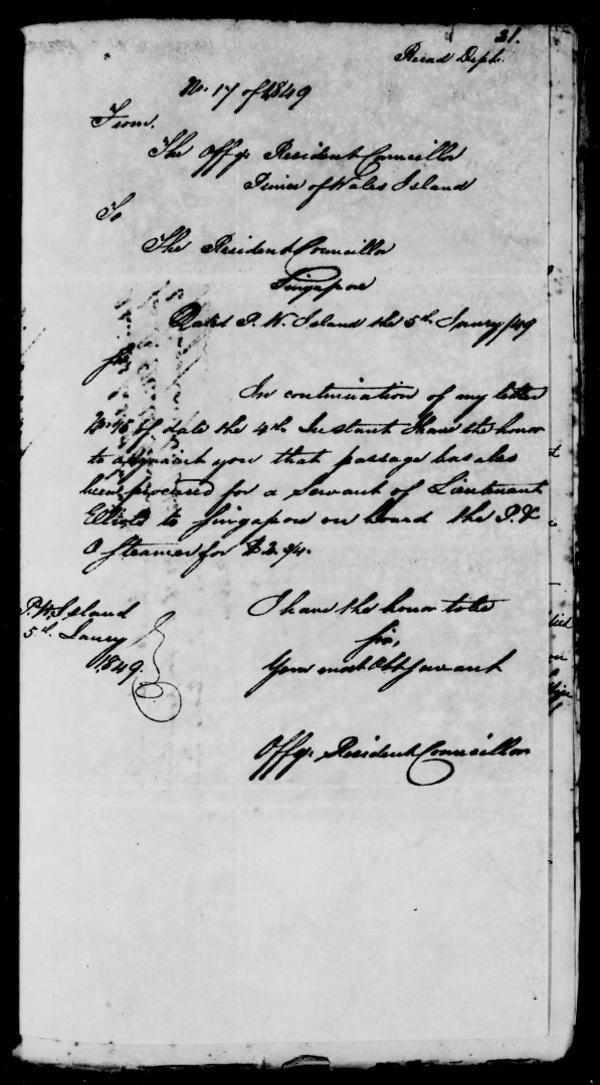 21.
Dept.
No. 17 of 1849
From.
The Offg. Resident Councillor
Prince of Wales Island
To
The Resident Councillor
Singapore
Dated P. W. Island the 5th Janry /49
Sir,
In continuation of my letter
No. 15 of date the 4th Instant I have the honor
to you that passage has also
been procured for a Servant of Lieutenant
Elliot to Singapore on board the P. &
O Steamer for $
P. W. Island
5th Janry
1849.
I have the honor to be
Sir,
Your most Obt Servant
Offg. Resident Councillor